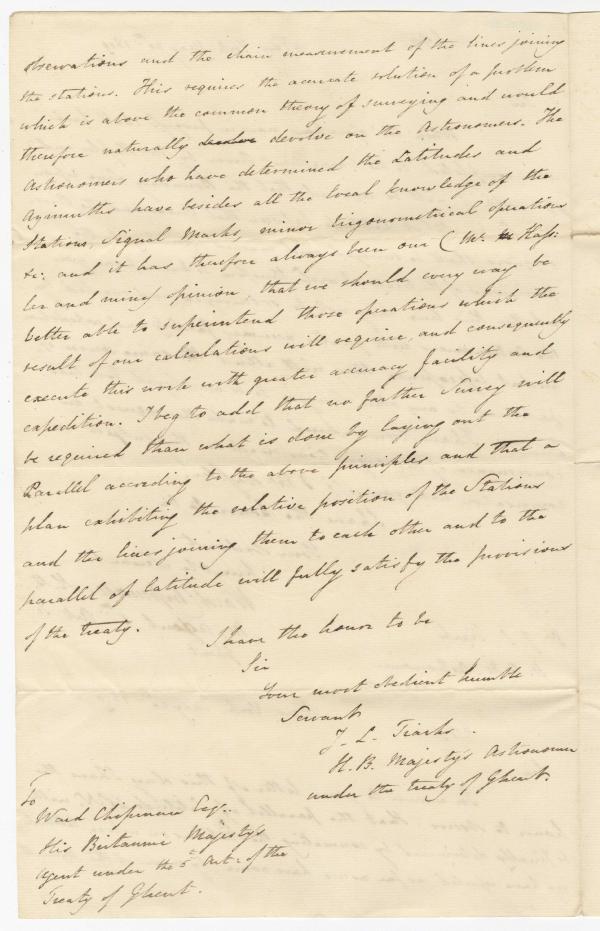 observations and the chain measurement of the lines joining
the stations. This requires the accurate solution of a problem
which is above the common theory of surveying and would
therefore naturally devolve on the Astronomers. The
Astronomers who have determined the Latitudes and
Azimuths have besides all the local knowledge of the
Stations, Signal Marks, minor trigonometrical operations
&c: and it has therefore always been our (Mr. Hass:
ler and mine) opinion, that we should every way be
better able to superintend those operations which the
result of our calculations will require, and consequently
execute this work with greater accuracy facility and
expedition. I beg to add that no farther Survey will
be required than what is done by laying out the
Parallel according to the above principles and that a
plan exhibiting the relative position of the Stations
and the lines joining them to each other and to the
parallel of latitude will fully satisfy the provisions
of the treaty.
I have the honor to be
Sir
Your most obedient humble
Servant
J. L. Tiarks.
H. B. Majesty's Astronomer
under the treaty of Ghent.
To
Ward Chipman Esq.
His Britannic Majesty's
Agent under the 5t Art: of the
Treaty of Ghent.